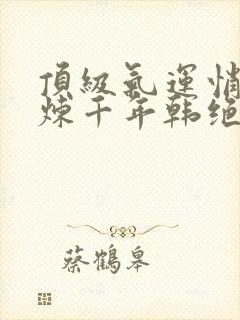 頂級氣運悄
煉千年韩绝
蔡鶴皋